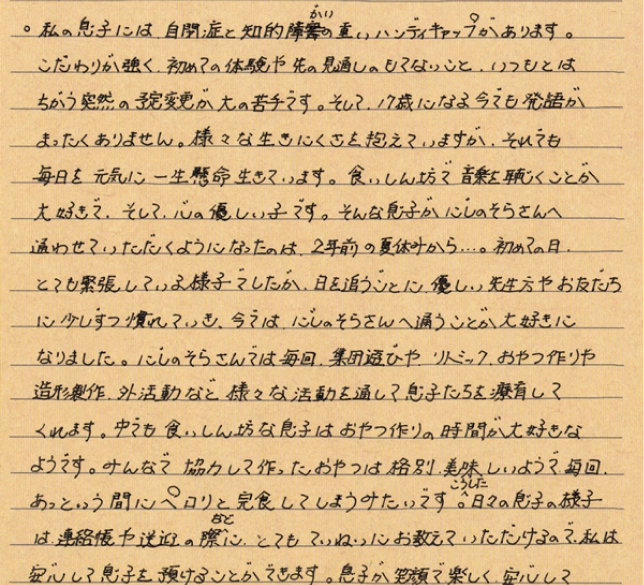 。私の息子には、自閉症と知的障害の重いハンディキャップがあります。
こだわりが強く、初めての体験や先の見通しのもてないこと、いつもとは
ちがう突然の予定変更が大の苦手です。そして、17歳になる今でも発語が
まったくありません。様々な生きにくさを抱えていますが、それでも
毎日を元気に一生懸命生きています。食いしん坊で音楽を聴くことが
大好きで、そして、心の優しい子です。そんな息子がにじのそらさんへ
通わせていただくようになったのは、2年前の夏休みから…。初めての日、
とても緊張している様子でしたが、日を追うごとに、優しい先生方やお友だち
に少しずつ慣れていき、今では、にじのそらさんへ通うことが大好きに
なりました。にじのそらさんでは毎回、集団遊びや、リトミック、おやつ作りや
造形製作、外活動など、様々な活動を通して息子たちを療育して
くれます。中でも食いしん坊な息子はおやつ作りの時間が大好きな
ようです。みんなで協力して作ったおやつは格別、美味しいようで毎回、
あっという間にペロリと完食してしまうみたいです。こうした日々の息子の様子
は、連絡帳や送迎の際などに、とてもていねいにお教えていただけるので、私は
安心して息子を預けることができます。息子が笑顔で楽しく、安心して